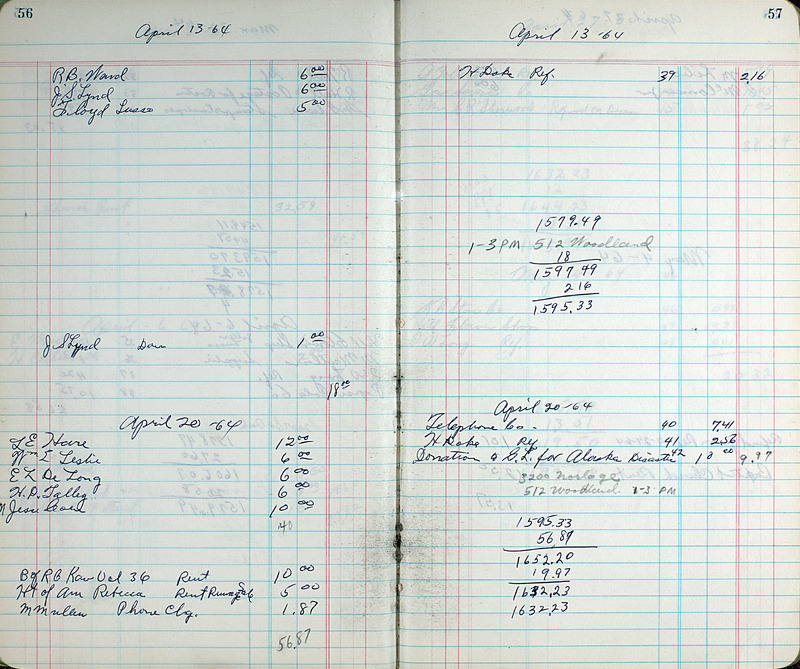 56
April 13-64
R.B. Ward 6 00
J.S. Lynd 6 00
Floyd Lusso 5 00
J S Lynd Don 1 00
18 00
April 20-64
L E Hare 12 00
Wm E Leslie 6 00
E L De Long 6 00
H.P. Talley 6 00
Jesse 10 00
40
B of R B Kaw Val 36 Rent 10 00
Ht of Am Rebecca Rent 5 00
McMullen Phone Chg. 1.87
56.87
57
April 13-64
H Doke Ref. 39 2 16
1579.49
1-3 PM 512 Woodland
18
1597 49
2 16
1595.33
April 20-64
Telephone Co. 40 7 41
H Doke Ref. 41 2 56
Donation to G.L. for Alaska Disaster 42 10 00 9.97
3200 Norledge
512 Woodland 1-3 PM
1595.33
56.87
1652.20
19.97
1632.23
1632.23